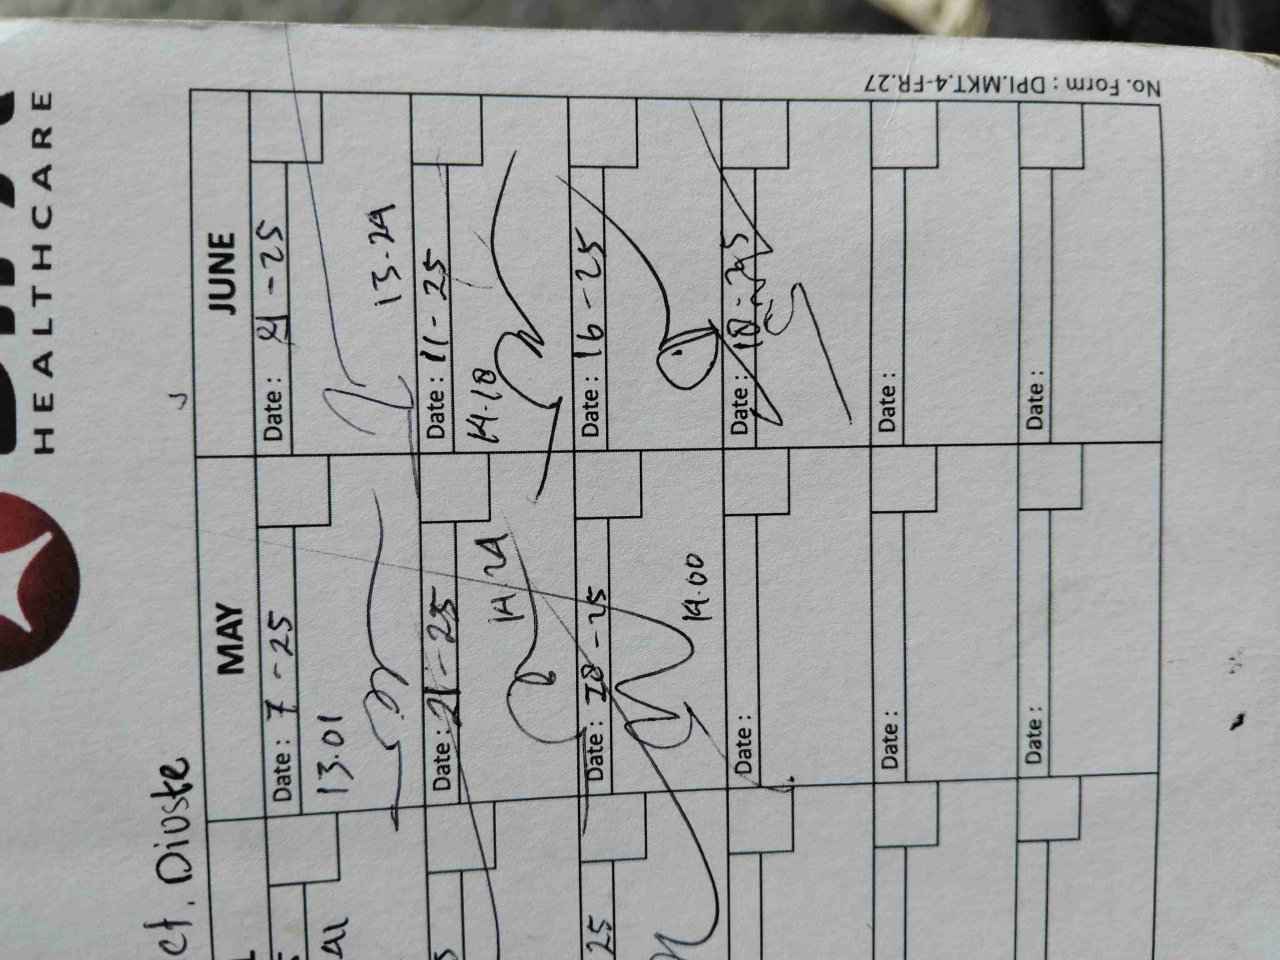 HEALTHCARE
No. Form : DPI.MKT.4-FR.27
ct. Diuste
MAY
JUNE
Date : 7 - 25
13.01
Date : 21 - 25
14.24
Date : 28 - 25
14.00
Date :
Date :
Date :
Date : 4 - 25
13.24
Date : 11 - 25
14.18
Date : 16 - 25
Date : 18 - 25
Date :
Date :
25